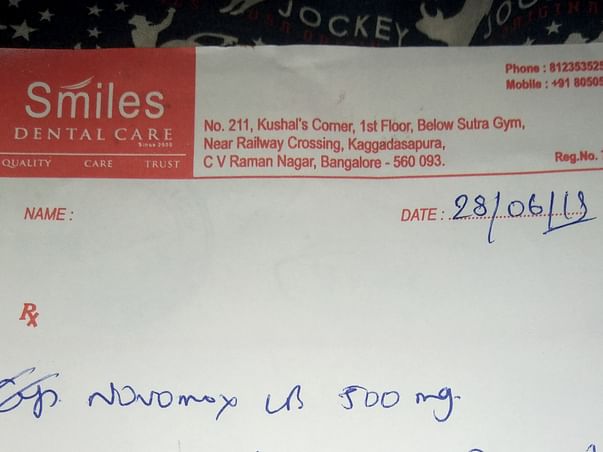 JOCKEY
Phone : 812353525
Mobile : +91 80505
Smiles
DENTAL CARE
Since 2008
QUALITY CARE TRUST
No. 211, Kushal's Corner, 1st Floor, Below Sutra Gym,
Near Railway Crossing, Kaggadasapura,
C V Raman Nagar, Bangalore - 560 093.
Reg.No.
NAME :
DATE : 28/06/18
Rx
Novomox LB 500 mg